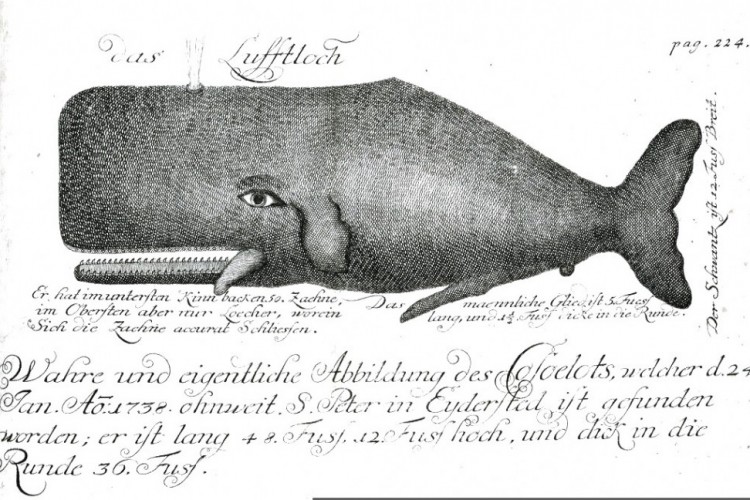 Das Lufftloch
pag. 224.
Der Schwantz ist 12 Fuss Breit.
Er hat im untersten Kinn backen 50. Zaehne,
im Obersten aber nur Loecher, worein
Sich die Zaehne accurat Schliessen.
Das maennliche Glied ist 5. Fuess
lang, und 1½ Fuss dicke in die Runde.
Wahre und eigentliche Abbildung des Cosoelots, welcher d. 24
Jan. Aõ. 1738. ohnweit S. Peter in Eyderstad ist gefunden
worden; er ist lang 48. Fuss. 12. Fuss hoch, und dick in die
Runde 36. Fuss.